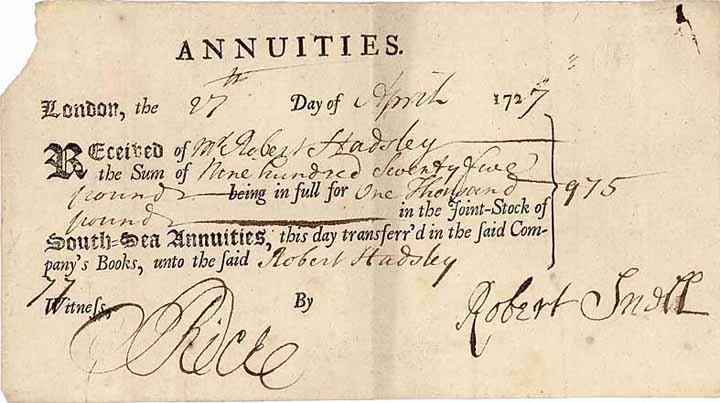 ANNUITIES.
London, the 27th Day of April 1727
Received of Mr. Robert Hadsley
the Sum of Nine hundred Seventy five
pounds being in full for One Thousand 975
pounds in the Joint-Stock of
South-Sea Annuities, this day transferr'd in the said Com-
pany's Books, unto the said Robert Hadsley
77
Witness, By Robert Snell
Rice